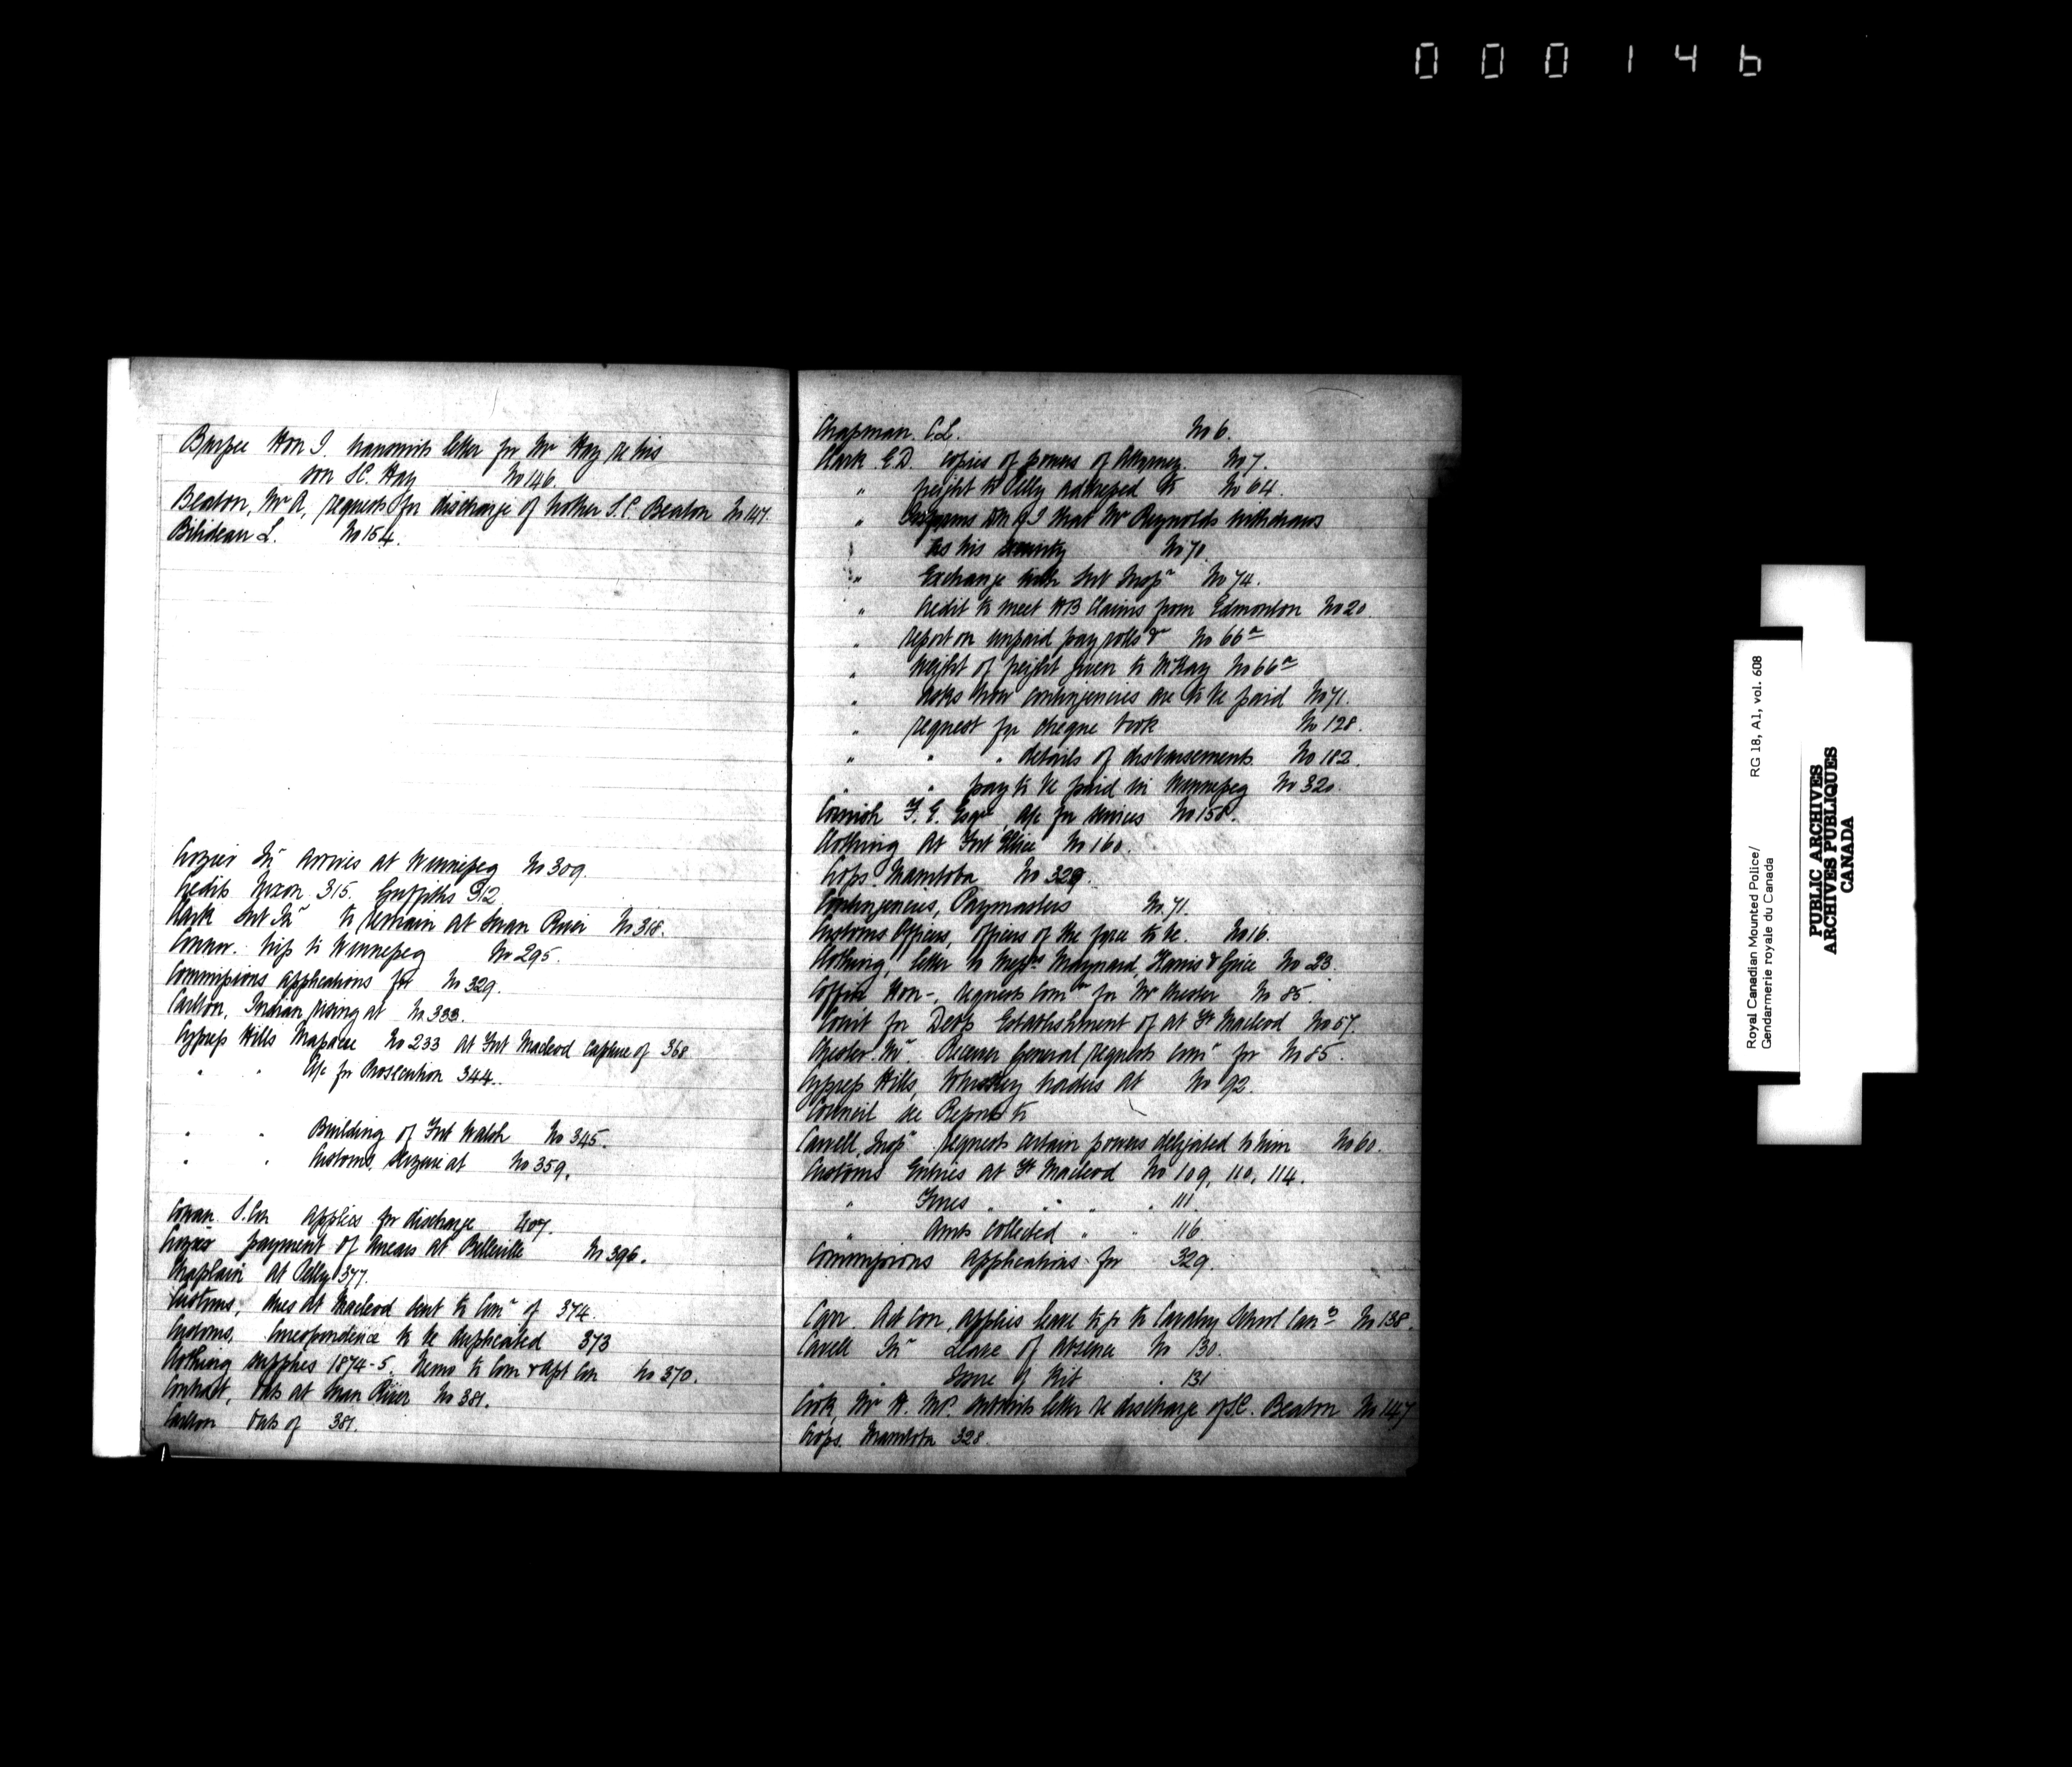 000146
Burpee Hon I. transmits letter for Mr Hay re his
son S.C. Hay No 146.
Beaton, Mr A, requests for discharge of brother S.C. Beaton No 147.
Bilideau L. No 154.
Crozier Inr arrives at Winnepeg No 309.
Credits Nixon 315. Griffiths 312
Clark Sub Inr to remain at Swan River No 318.
Connor. trip to Winnepeg No 295.
Commissions applications for No 329.
Carlton, Indian rising at No 333.
Cypress Hills Massacre No 233 at Fort Macleod capture of 368
" " A/c for Prosecution 344.
" " Building of Fort Walsh No 345.
" " Customs, seizure at No 359.
Cowan S. Con applies for discharge 407.
Crozier payment of arrears at Belleville No 396.
Chaplain at Pelly 377.
Customs, dues at Macleod sent to Comr of 374.
Customs, Correspondence to be duplicated 373
Clothing supplies 1874-5. Memo to Com & Asst Com No 370.
Contract, Oats at Swan River No 381.
Carlton Oats of 381.
Chapman. C.L. No 6.
Clark E.D. copies of powers of Attorney. No 7.
" freight to Pelly addressed to No 64.
" Informs DM of J that Mr Reynolds withdraws
as his security No 70.
" Exchange with Sub Inspr No 74.
" Credit to meet HB Claims from Edmonton No 20
" report on unpaid pay rolls &c No 66a
" weight of freight given to McKay No 66a
" asks how contingencies are to be paid No 71.
" request for cheque book No 128.
" " " details of disbursements No 182.
" " pay to be paid in Winnepeg No 320.
Cornish F. E. Esqre, A/c for services No 158.
Clothing at Fort Ellice No 160.
Crops. Manitoba No 329.
Contingencies, Paymasters No. 71.
Customs Officers, officers of the force to be. No 16.
Clothing, letter to Messrs Maynard, Harris & Grice No 23.
Coffin Hon -, requests Comn for Mr Chester No 85.
Court for Debts Establishment of at Ft Macleod No 57.
Chester Mr. Receiver General requests comn for No 85.
Cypress Hills, Whiskey traders at No 92.
Council see Reports to
Carvell, Inspr requests certain powers delegated to him No 60.
Customs Entries at Ft Macleod No 109, 110, 114.
" Fines " " " " 111.
" Amts collected " " 116
Commissions applications for 329.
Carr. Act Con, applies leave to go to Cavalry School No 138.
Carvell Inr Leave of Absence No 130.
" " Issue of Kit " 131
Cook, Mr H. MP. submits letter re discharge of S.C. Beaton No 147
Crops. Manitoba 328.
Royal Canadian Mounted Police/
Gendarmerie royale du Canada
RG 18, A1, vol. 608
PUBLIC ARCHIVES
ARCHIVES PUBLIQUES
CANADA